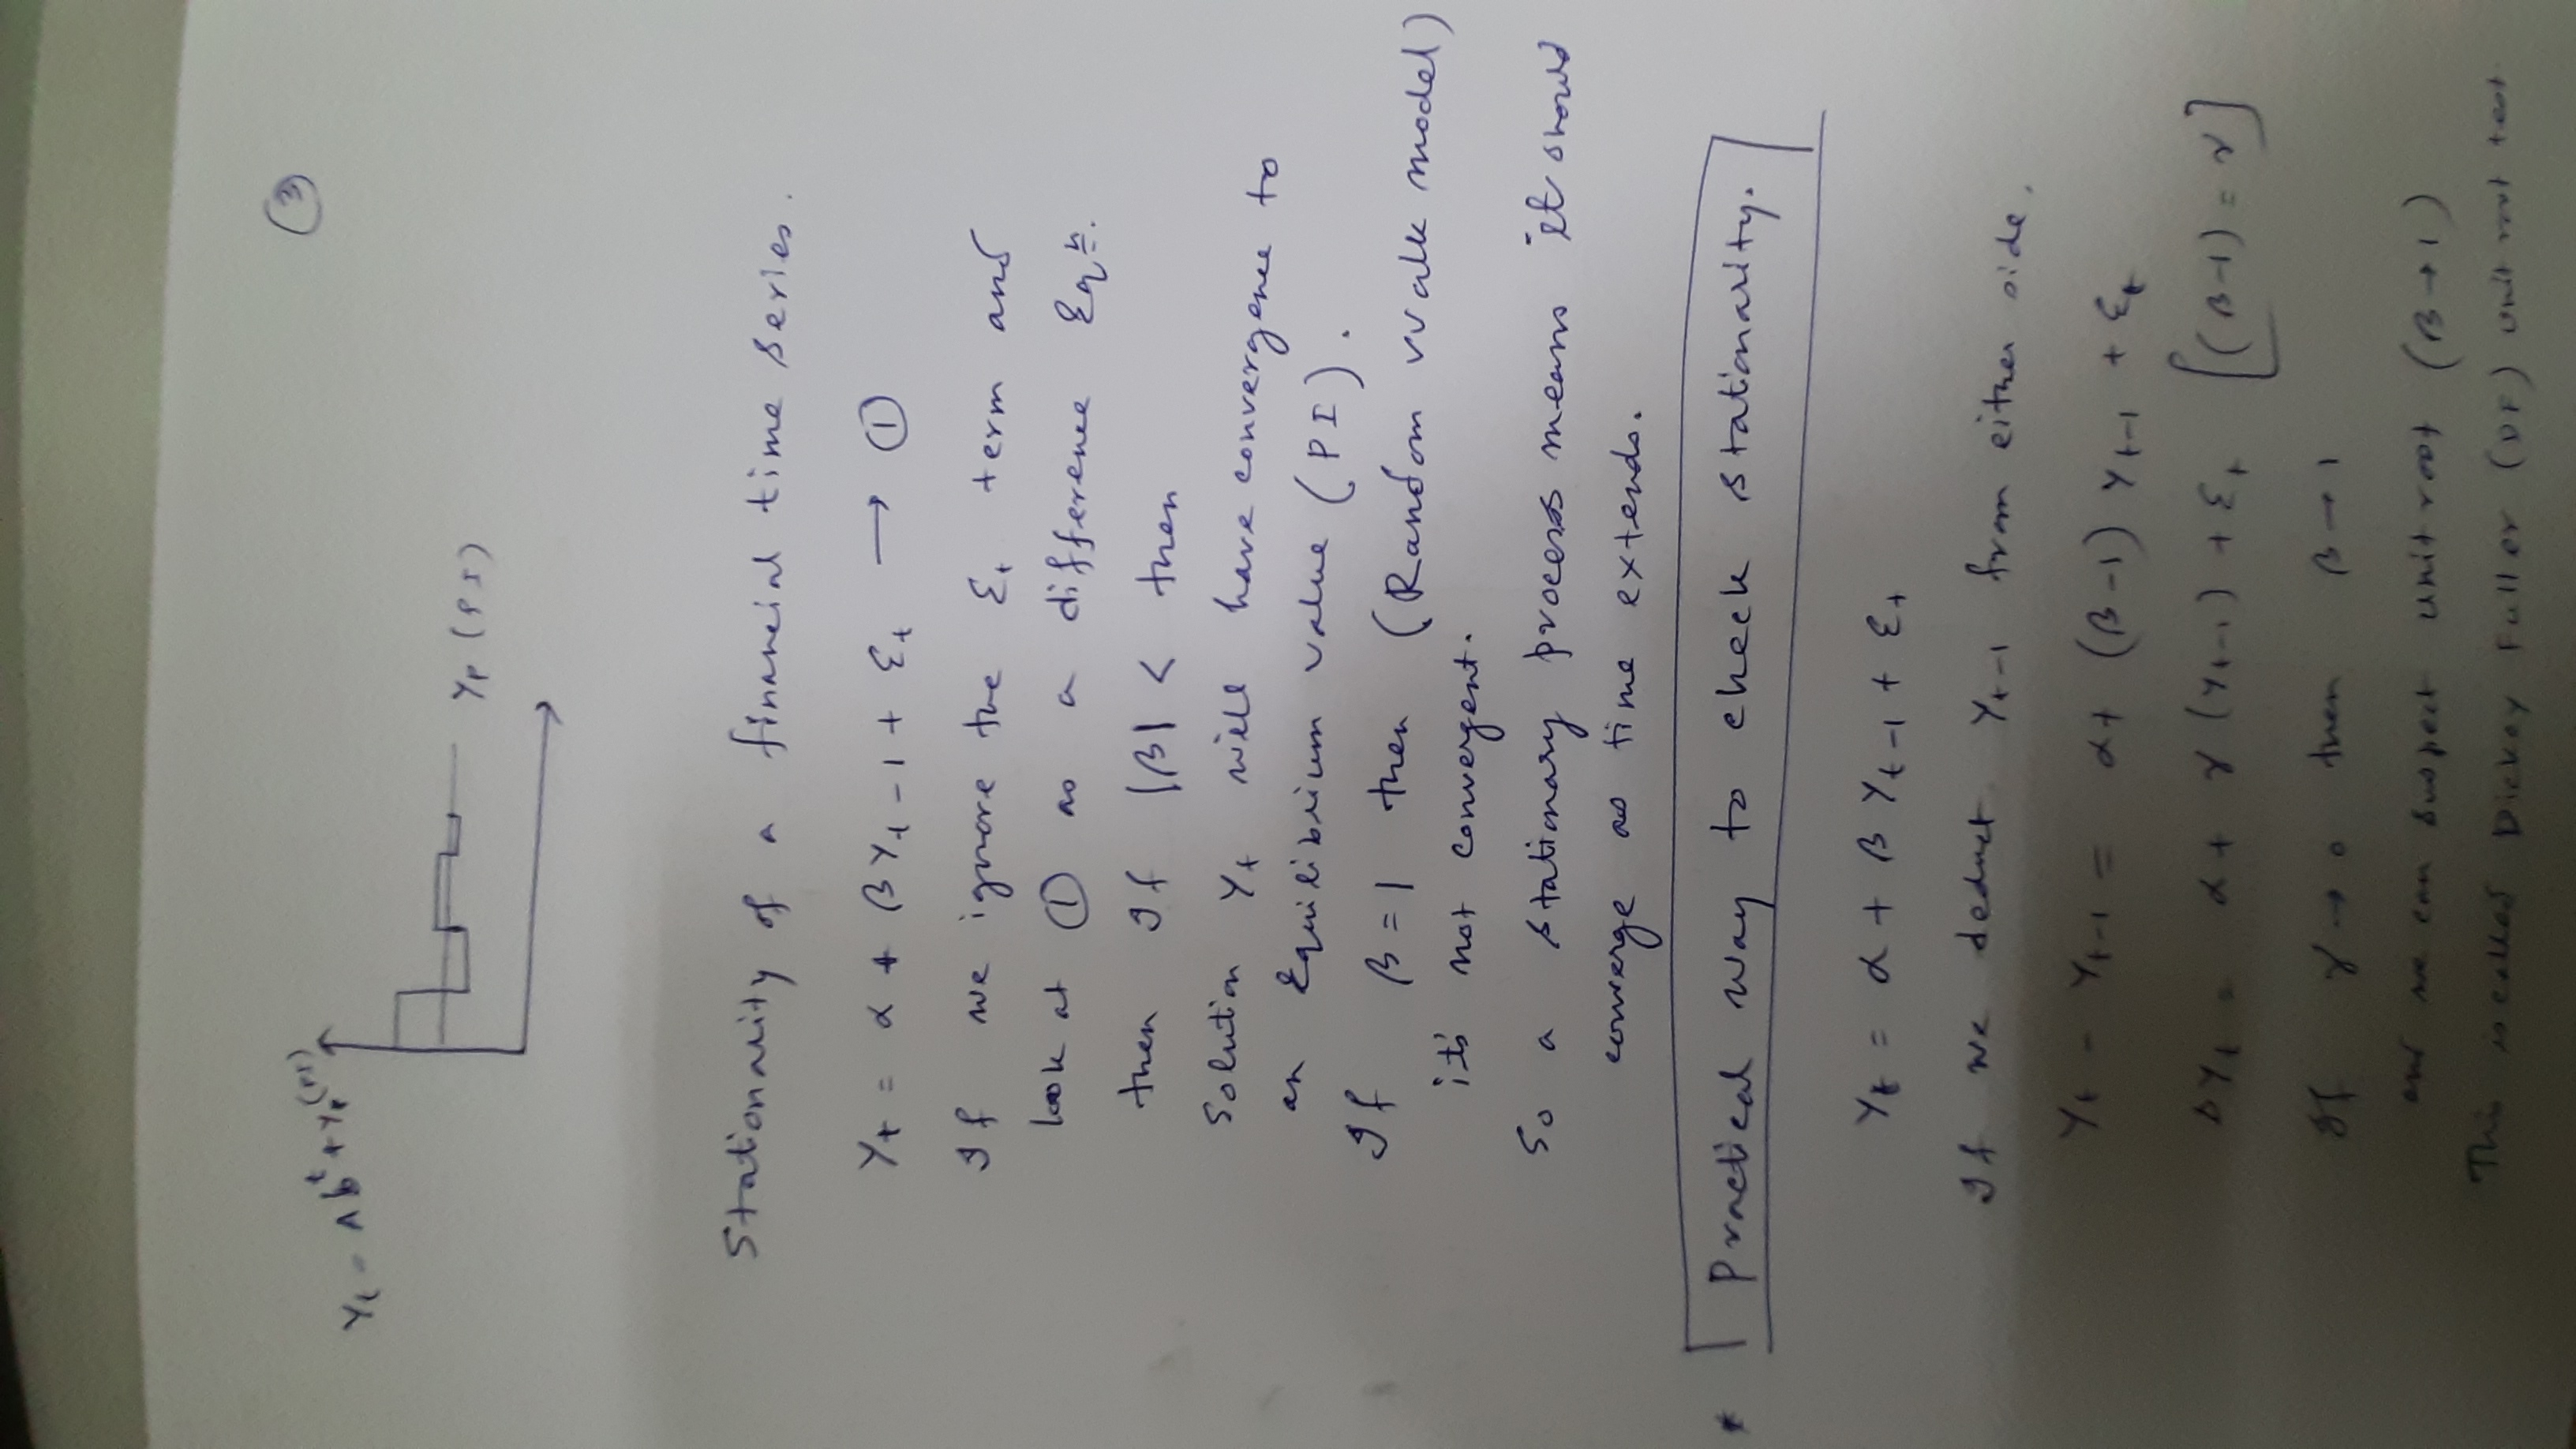 ③
Yₜ = Abᵗ + Yₚ(PI)
Yₚ (PI)
Stationarity of a financial time series.
Yₜ = α + βYₜ₋₁ + Ɛₜ → ①
If we ignore the Ɛₜ term and
look at ① as a difference Eqⁿ.
then If |β| < then
Solution Yₜ will have convergence to
an Equilibrium value (PI).
If β = 1 then (Random walk model)
it's not convergent.
So a stationary process means it should
converge as time extends.
* Practical way to check stationarity.
Yₜ = α + βYₜ₋₁ + Ɛₜ
If we deduct Yₜ₋₁ from either side.
Yₜ - Yₜ₋₁ = α + (β-1) Yₜ₋₁ + Ɛₜ
ΔYₜ = α + γ(Yₜ₋₁) + Ɛₜ [(β-1) = γ]
If γ → 0 then β → 1
and we can suspect unit root (β → 1)
This is called Dickey Fuller (DF) unit root test.